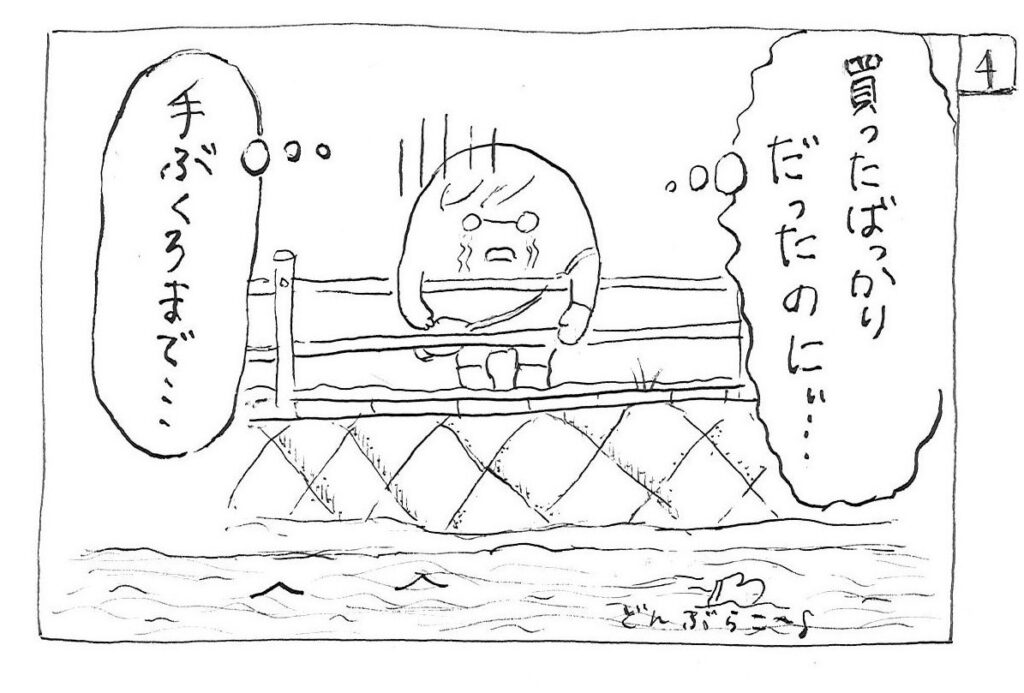 4
買ったばっかり
だったのにぃ…
手ぶくろまで…
どんぶらこ〜